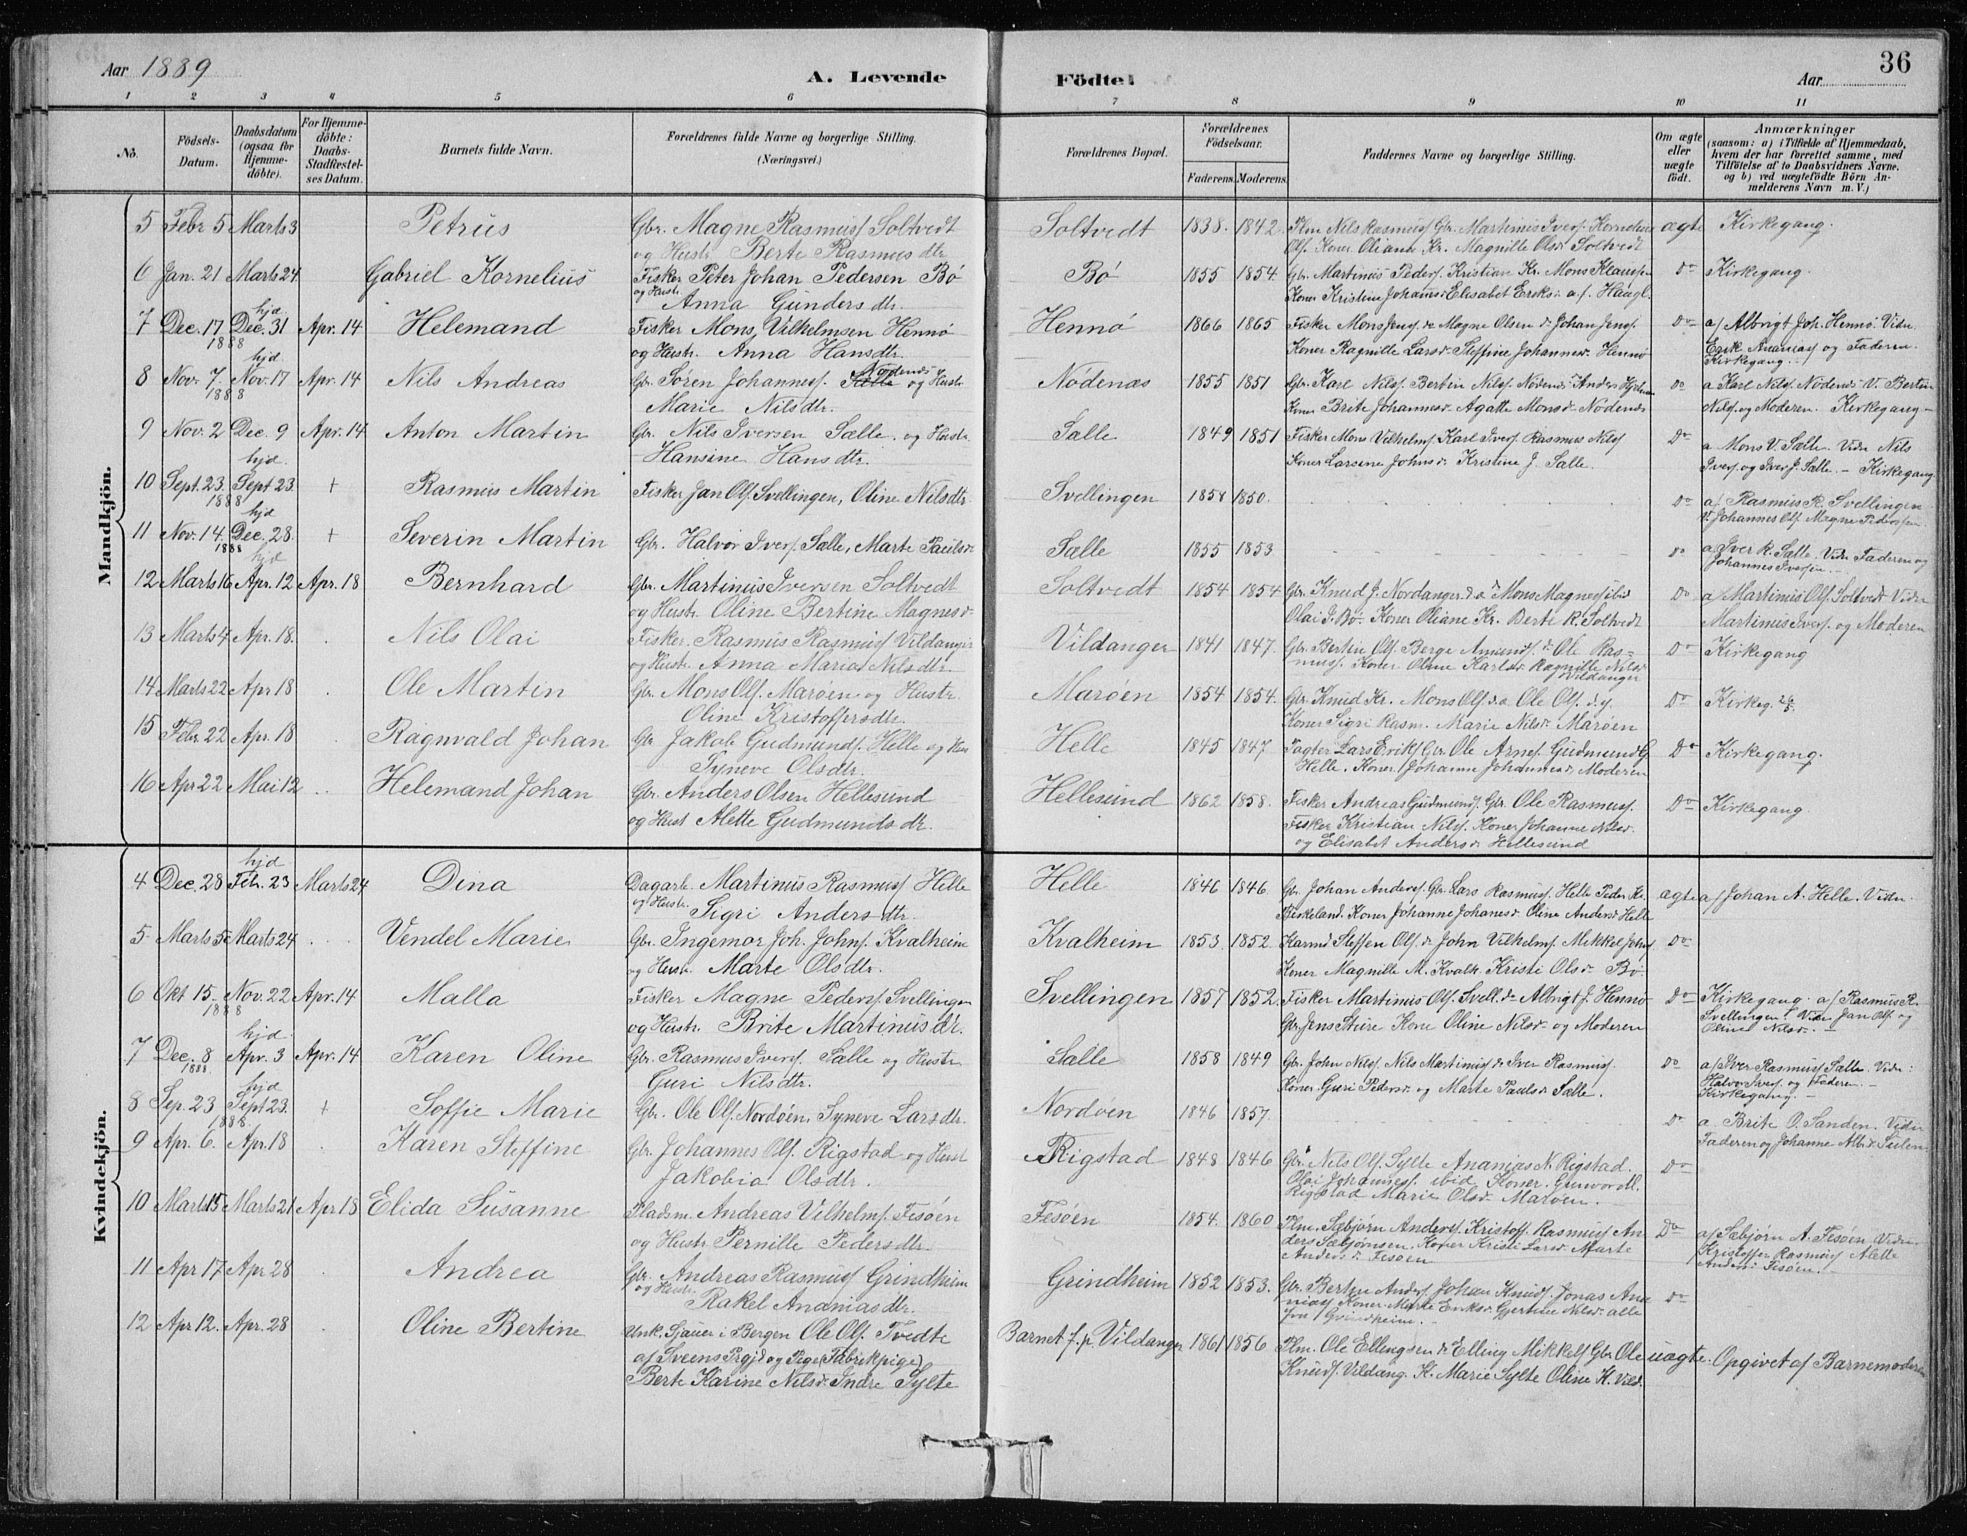 Aar 1889
A. Levende Födte.
Aar
36
1 2 3 4 5 6 7 8 9 10 11
No.
Födsels-Datum.
Daabsdatum (ogsaa for Hjemme-döbte).
For Hjemme-döbte: Daabs-Stadfæstel-ses Datum.
Barnets fulde Navn.
Forældrenes fulde Navne og borgerlige Stilling. (Næringsvei.)
Forældrenes Bopæl.
Forældrenes Födselsaar.
Faderens. Moderens.
Faddernes Navne og borgerlige Stilling.
Om ægte eller uægte födt.
Anmærkninger (saasom: a) i Tilfælde af Hjemmedaab, hvem der har forrettet samme, med Tilföielse af to Daabsvidners Navne. og b) ved uægtefödte Börn Anmelderens Navn m. V.)
Mandkjön.
5 Febr 5 Marts 3 Petrus Gbr. Magne Rasmusf Soltvedt Soltvedt 1838. 1842. Plm Nils Rasmusf Gbr. Martinus Iversf Kornelius ægte Kirkegang.
og Hustr Berte Rasmusdtr Olf. Koner Oliane Kr. Magnille Olsdr Soltvedt
6 Jan. 21 Marts 24 Gabriel Kornelius Fisker Peter Johan Pedersen Bö Bö 1855 1854. Gbr. Martinus Pedersf. Kristian Kr. Mons Do Kirkegang.
og Hustr. Anna Gundersdtr. Koner Kristine
7 Dec. 17 1888 hjd. Dec. 31 Apr. 14 Helemand Fisker Mons Vilhelmsen Hennö Hennö 1866 1865 Fisker Mons Jensf. do Magne Olsen do Johan Jensf. Do a/ Albrigt Joh. Hennö. Vidn.
og Hustr. Anna Hansdtr. Koner Ragnille Larsdr Steffine Johannesdr. Hennö Erik Ananiasf og Faderen. Kirkegang.
8 Nov. 7. 1888 hjd. Nov. 17 Apr. 14 Nils Andreas Gbr. Sören Johannesf. Sælle Nödenes og Hustr Nödenæs 1855 1851 Gbr. Karl Nilsf. Bertin Nilsf Nödenes do a Karl Nilsf Nödenes V. Bertin
Marie Nilsdtr. Koner Brite Johannesdr Agatte Monsdr Nödenes Nilsf og Moderen. Kirkegang
9 Nov. 2 Dec. 9 Apr. 14 Anton Martin Gbr. Nils Iversen Sælle. og Hustr Sælle 1849 1851 Fisker Mons Vilhelmf. Karl Iversf Rasmus Nilsf Do a Mons V. Sælle Vidn Nils
Hansine Hansdtr. Koner Larsine Johnsdr Kristine J. Sælle. Iversf og Iver J. Sælle. – Kirkegang
10 Sept. 23. 1888 hjd. Sept 23. + Rasmus Martin Fisker Jan Olf. Svellingen, Oline Nilsdtr Svellingen 1858 1850. do a/ Rasmus R. Svellingen
V. Johannes Olf. Magne Pedersen
11 Nov. 14. 1888 hjd Dec. 28. + Severin Martin Gbr. Halvor Iversf. Sælle, Marte Paulsdr Sælle 1855 1853 do a Iver R. Sælle. Vidn Faderen og
Johannes Iversen.
12 Marts 16 hjd Apr. 12 Apr. 18 Bernhard Gbr. Martinus Iversen Soltvedt Soltvedt 1854 1854 Gbr. Knud J. Nordanger d.o Mons Magnesf ibid Do a/ Martinus Olf. Soltvedt Vidn
og Hustr. Oline Bertine Magnesdr Olai J. Bö. Koner Oliane Kr. Berte R. Soltvedt Martinus Iversf. og Moderen
13 Marts 4 Apr. 18. Nils Olai Fisker. Rasmus Rasmusf Vildanger Vildanger 1841 1847. Gbr. Bertin Olf. Berge Amundf. do Ole Ras- Do Kirkegang
og Hustr. Anna Maria Nilsdtr. musf. Koner Oline Karlsdr Ragnille Nilsdr Vildanger
14 Marts 22 Apr 18 Ole Martin Gbr. Mons Olf. Maröen og Hustr. Maröen 1854 1854. Gbr. Knud Kr. Mons Olf. d.o. Ole Olf. d.y. Do Kirkeg.
Oline Kristoffersdtr. Koner Sigri Rasm. Marie Nilsdr Maröen
15 Febr 22 Apr. 18 Ragnvald Johan Gbr Jakob Gudmundsf. Helle og Hus Helle 1845 1847. Lars Eriksf Gbr. Ole Arnesf. Gudmund G. Do Kirkegang.
Syneve Olsdtr. Helle. Koner Johanne Johannesdr. Moderen
16 Apr 22 Mai 12 Helemand Johan Gbr. Anders Olsen Hellesund Hellesund 1862 1858. Fisker Andreas Gudmundsf. Gbr. Ole Rasmusf. Do Kirkegang.
og Hust Alette Gudmundsdtr. Fisker Kristian Nilsf. Koner Johanne Nilsdr.
og Elisabet Andersdr Hellesund
Kvindekjön.
4 Dec. 28 hjd Febr. 23 Marts 24 Dina Dagarb. Martinus Rasmusf Helle Helle 1846 1846. Gbr. Johan Andersf. Gbr. Lars Rasmusf. Helle Peder Kr. ægte a/ Johan A. Helle. Vidn.
og Hustr. Sigri Andersdtr. Biskeland. Koner Johanne Johanesdr. Oline Andersdr Helle
5 Marts 5 Marts 24 Vendel Marie Gbr. Ingemor Joh. Johnf. Kvalheim Kvalheim 1853. 1852. Steffen Olf. do John Vilhelmf. Mikkel Johnf Do
og Hustr. Marte Olsdtr. Koner Magnille M. Kvalh. Kristi Olsdr Bö
6 Okt 15. 1888 Nov. 22 Apr. 14 Malla Fisker Magne Pedersf. Svellingen Svellingen 1857 1852. Fisker Martinus Olf. Svell. do Albrigt J. Hennö Do Kirkegang. a/ Rasmus R.
og Hustr. Brite Martinusdtr. Gbr. Jens Sture Kone Oline Nilsdr og Moderen Svellingen Vidn Jan Olf. og Oline Nilsdr.
7 Dec. 8 1888. hjd. Apr. 3 Apr. 14 Karen Oline Gbr. Rasmus Iversf. Sælle og Hustr Sælle 1858 1849 Gbr. John Nilsf. Nils Martinusf do Iver Rasmusf. Do a/ Iver Rasmusf Sælle. Vidn:
Guri Nilsdtr. Koner Guri Pedersdr og Marte Paulsdr Sælle. Halvor Iversf. og Faderen. – Kirkegang.
8 Sep. 23 1888. hjd Sept 23. + Soffie Marie Gbr. Ole Olf. Nordöen, Syneve Larsdtr. Nordöen 1846 1857. do a. Brite O. Sanden. Vidn
Faderen og Johanne
9 Apr. 6. Apr. 18 Karen Steffine Gbr. Johannes Olf. Rigstad og Hust Rigstad 1848 1846 Gbr. Nels Olf. Sylte Ananias N. Rigstad. Do
Jakobia Olsdtr. Olai Johannesf. ibid Koner. Gunvor Rigstad Marie Olsdr. Maröen.
10 Marts 15 Marts 21 Apr 18 Elida Susanne Pladsm. Andreas Vilhelmf. Fesöen Fesöen 1854. 1860. Plm. Sæbjörn Andersf. Kristoff. Rasmusf An- Do a/ Sæbjörn A. Fesöen Vidn.
og Hustr Pernille Pedersdtr. ders Sæbjörnsen. Koner Kristi Larsdr Marte Andersdr. Fesöen Kristoffer Rasmusf Alette Andersdr Fesöen.
11 Apr 17 Apr 28 Andrea Gbr. Andreas Rasmusf Grindheim Grindheim 1852 1853. Gbr. Bertin Andersf Johan Knudsf. Jonas Ana- do
og Hustr. Rakel Ananiasdtr. niasf Koner. Marte Eriksdr. Gjertine Nilsdr. alle fra Grindheim.
12 Apr 12. Apr. 28 Oline Bertine Unk. Sjauer i Bergen Ole Olf. Tvedte Barnet f. p. Vildanger 1861 1856 Plm. Ole Ellingsen do Elling Mikkelsf Gbr. Ole uægte. Opgivet af Barnemoderen
af Sveens Prgjd og Pige (Fabrikpige) Knudsf. Vildang. K. Marie Sylte Oline K. Vild.
Berte Karine Nilsdr Indre Sylte